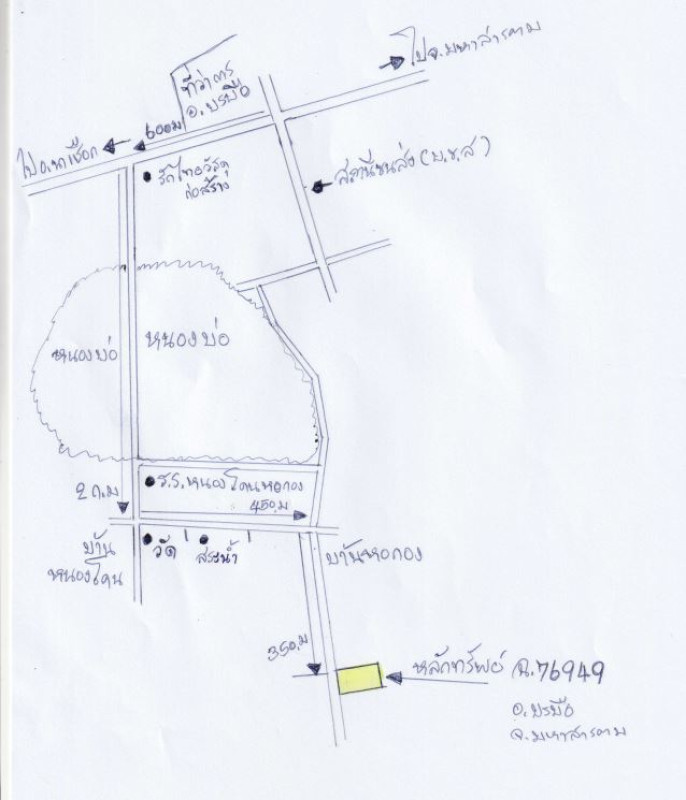 ไป จ.มหาสารคาม
ที่ว่าการ
อ.บรบือ
600ม
ไป อ.นาเชือก
รักไทยวัสดุ
ก่อสร้าง
สถานีขนส่ง (บ.ข.ส)
หนองบ่อ
หนองบ่อ
ร.ร.หนองโคนหอกอง
450.ม
2 ก.ม
บ้าน
หนองโคน
วัด
สระน้ำ
บ้านหอกอง
350.ม
หลักทรัพย์ ฉ.76949
อ.บรบือ
จ.มหาสารคาม